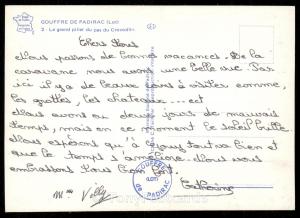 GOUFFRE DE PADIRAC (Lot)
2 - Le grand pilier du pas du Crocodile
Chers tous
Nous passons de bonnes vacances. De la
caravane nous avons une belle vue. Par
ici il y a de beaux coins à visiter comme,
les grottes, les chateaux...ect
Nous avons eu deux jours de mauvais
temps, mais en ce moment le soleil brille
Nous espérons qu'à tout va bien et
que le temps s'améliore. Nous vous
embrassons tous bien fort
Catherine
GOUFFRE
(LOT)
DE PADIRAC
Mme